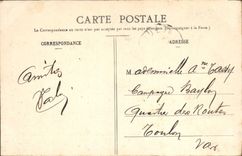 CARTE POSTALE
La Correspondance au recto n'est pas acceptée par tous les pays étrangers (Se renseigner à la Poste)
CORRESPONDANCE
ADRESSE
Amitiés
Mademoiselle
Campagne
Quartier des Routes
Toulon
Var